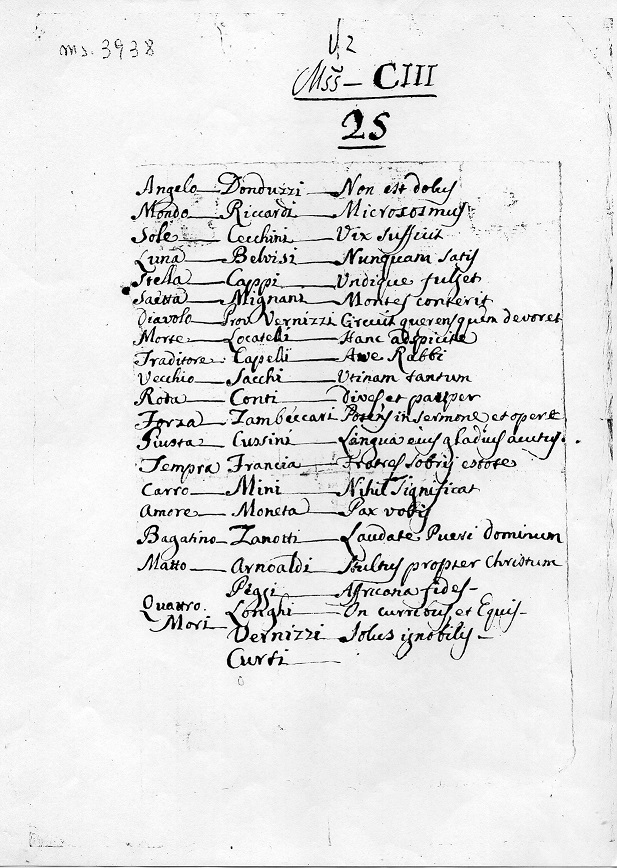 ms. 3938
V. 2
Mss̃ — CIII
25
Angelo — Donduzzi — Non est dolus
Mondo — Riccardi — Micrososmus
Sole — Cecchini — Vix sufficit
Luna — Belvisi — Nunquam satis
Stella — Cappi — Undique fulget
Saetta — Mignani — Montes conterit
Diavolo — Prov. Vernizzi Circuit querens quem devoret
Morte — Locatelli — Hanc adspicite
Traditore — Capelli — Awe Rabbi
Vecchio — Sacchi — Utinam tantum
Rota — Conti — Dives et pauper
Forza — Zambeccari Potens in sermone et opere
Giusta — Cussini — Lingua eius gladius acutus.
Tempra Francia — Fratres sobrii estote
Carro — Mini — Nihil significat
Amore — Moneta — Pax vobis
Bagatino — Zanotti — Laudate Pueri dominum
Matto — Arnoaldi — Stultus propter Christum
Peggi — Africana fides —
Quattro Longhi — In curribus et Equis —
Mori Vernizzi — Solus ignobilis —
Curti —